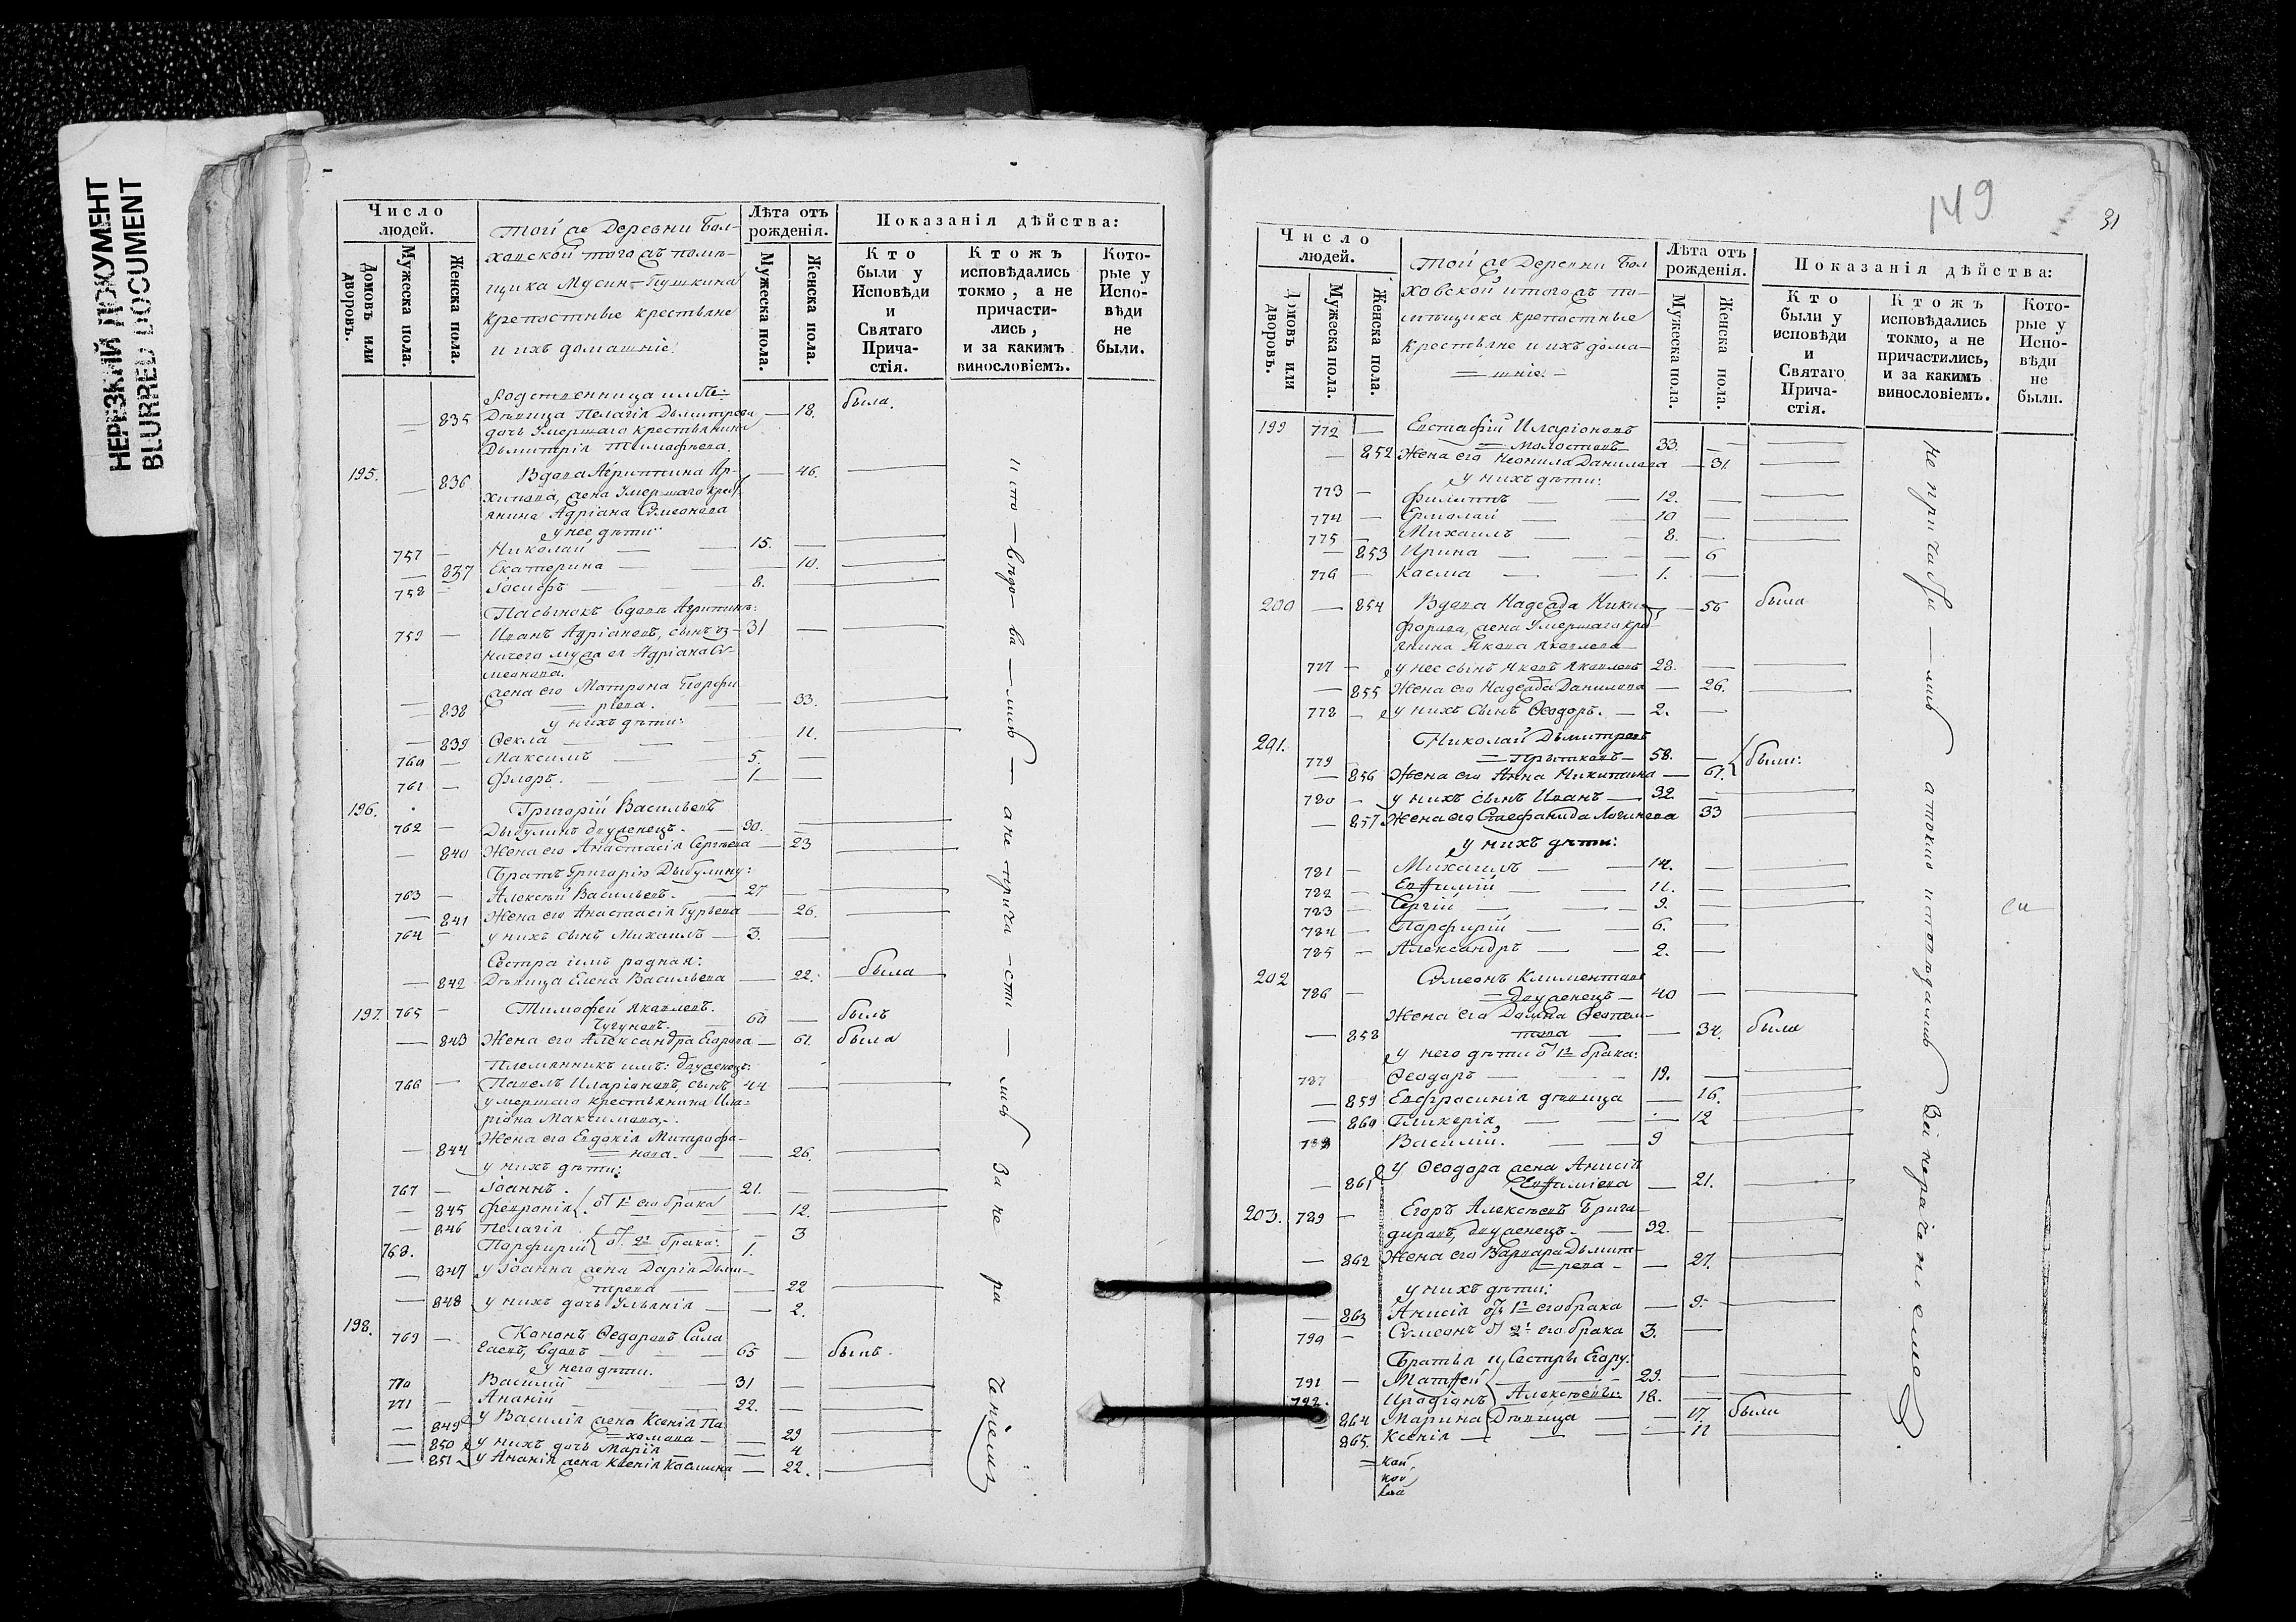 НЕРЕЗКИЙ ДОКУМЕНТ
BLURRED DOCUMENT
Число людей.
Домовъ или дворовъ.
Мужеска пола.
Женска пола.
Той же Деревни Бол-
ховской тогожъ помѣ-
щика Мусин-Пушкина
крепостные крестьяне
и ихъ домашніе:
Лѣта отъ рожденія.
Мужеска пола.
Женска пола.
Показанія дѣйства:
Кто были у Исповѣди и Святаго Прича-стія.
Ктожъ исповѣдались токмо, а не причасти-лись, и за какимъ винословіемъ.
Кото-рые у Испо-вѣди не были.
Родственница имъ:
835 Дѣвица Пелагія Дьмитрева — 18. была.
дочь умершаго крестьянина
Дьмитрія Тимофеева.
195. — 836 Вдова Агриппина Ар- — 46.
хипова, жена умершаго крест
янина Адріана Сѵмеонова
у нее дѣти:
757 — Николай — 15. —
— 837 Екатерина — 10.
758 — Іосифъ — 8.
Пасынокъ вдовы Агрипины:
759 — Иванъ Адріановъ, сынъ — 31 —
мужа ея Адріана Сѵ-
меонова.
жена его Матрона Порфи-
— 838 рьева. — 33.
у нихъ дѣти:
— 839 Ѳекла — 11.
760 — Максимъ — 5. —
761 — Флоръ. — 1 —
196. Григорій Васильевъ
762 — Дыбулинъ двуженецъ. — 30. —
— 840 Жена его Анастасія Сергѣева — 23
Братъ Григорію Дыбулину:
763 — Алексѣй Васильевъ. — 27 —
— 841 Жена его Анастасія Гурьева — 26.
764 — у нихъ сынъ Михаилъ — 3. —
Сестра имъ родная:
— 842 Дѣвица Елена Васильева — 22. была
197. 765 — Тимофей Яковлевъ.
Чугуновъ. 60 — былъ
— 843 Жена его Александра Егорова — 61. была
Племянникъ имъ: двуженецъ:
766 — Павелъ Иларіоновъ, сынъ 44 —
умершаго крестьянина Ила-
ріона Максимова,-.
Жена его Евдокія Митрофа-
— 844 нова. — 26.
у нихъ дѣти:
767 — Іоаннъ. — 21. —
— 845 Февронія от 1 его брака — 12.
— 846 Пелагія — 3
768. Парфирій от 2 брака: 1.
— 847 у Іоанна жена Дарія Дьми-
трева — 22
— 848 у нихъ дочь Ульянія — 2.
198. 769 — Кононъ Ѳедоровъ Сала
евъ, вдовъ — 65 — былъ.
у него дѣти.
770 Василій — 31 —
771 — Ананій — 22. —
— 849 у Василія жена Ксенія Па
хомова — 29
— 850 у нихъ дочь Марія — 4
— 851 у Ананія жена Ксенія — 22.
испо-вѣдо-ва-лись — а не прича-сти-лись За не ра ченіемъ
149
31
Число людей.
Домовъ или дворовъ.
Мужеска пола.
Женска пола.
Той же Деревни Бол
ховской и тогожъ по-
мѣщика крепостные
крестьяне и ихъ дома-
шніе:
Лѣта отъ рожденія.
Мужеска пола.
Женска пола.
Показанія дѣйства:
Кто были у исповѣди и Святаго Прича-стія.
Ктожъ исповѣдались токмо, а не причастились, и за какимъ винословіемъ.
Кото-рые у Испо-вѣди не были.
199 772 — Евстафій Иларіоновъ
33. —
— 852 Жена его Неонила Данилова — 31.
у нихъ дѣти:
773 — Филиппъ — 12. —
774 — Ермолай — 10 —
775 — Михаилъ — 8. —
— 853 Ирина — 6
776 — Косма — 1. —
200 — 854 Вдова Надежда Ники — 56 была
форова, жена умершаго крест
янина Якова Яковлева
777 — у нее сынъ Яковъ Яковлевъ 28. —
— 855 Жена его Надежда Данилова — 26.
778 — у нихъ сынъ Ѳеодоръ. — 2. —
201. Николай Дьмитревъ
779 — 58. — были:
— 856 Жена его Анна Никитина — 61.
780 — у нихъ сынъ Иванъ — 32 —
— 857 Жена его Стефанида Логинова 33
у нихъ дѣти:
781 — Михаилъ — 14. —
782 — Евѳимій — 11. —
783 — Сергій — 9. —
784 — Парфирій — 6. —
785 — Александръ — 2. —
202 Сѵмеонъ Климентовъ
786 — двуженецъ — 40 —
Жена его Домна
— 858 — 34. была
у него дѣти от 1 брака:
787 Ѳеодоръ — 19. —
— 859 Евфросинія дѣвица — 16.
— 860 Гликерія — 12
788 Василій. — 9 —
у Ѳеодора жена Анисія
— 861 Евѳиміева — 21.
203. 789 — Егоръ Алексѣевъ Брига-
дировъ, двуженецъ. — 32. —
— 862 Жена его Варвара Дьмит-
рева — 27.
у нихъ дѣти:
863 Анисія от 1 его брака — 9.
790 — Сѵмеонъ от 2 его брака 3. —
Братья и Сестры Егору:
791 — Матѳей — 29. —
792. Иродіонъ Алексѣевы: 18. —
864 Марина Дѣвица — 17. были
865. Ксенія — 11
не причасти — лись а токмо исповѣдались За нераченіемъ